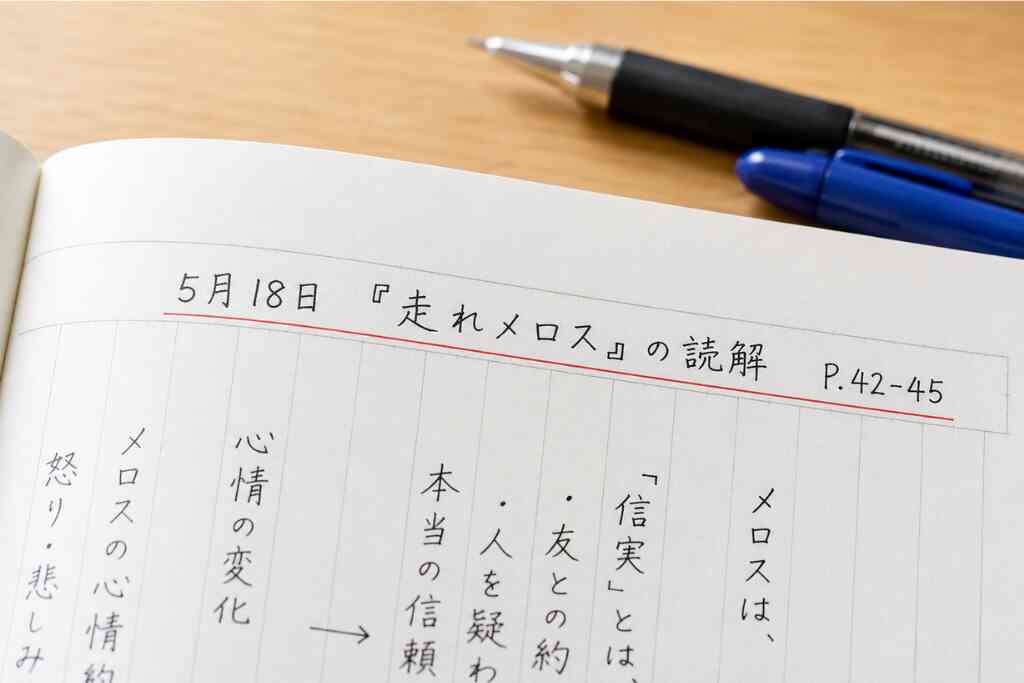 5月18日 『走れメロス』の読解 P.42-45
メロスは、
「信実」とは、
・友との約
・人を疑わ
本当の信頼
→
心情の変化
メロスの心情約
怒り・悲しみ